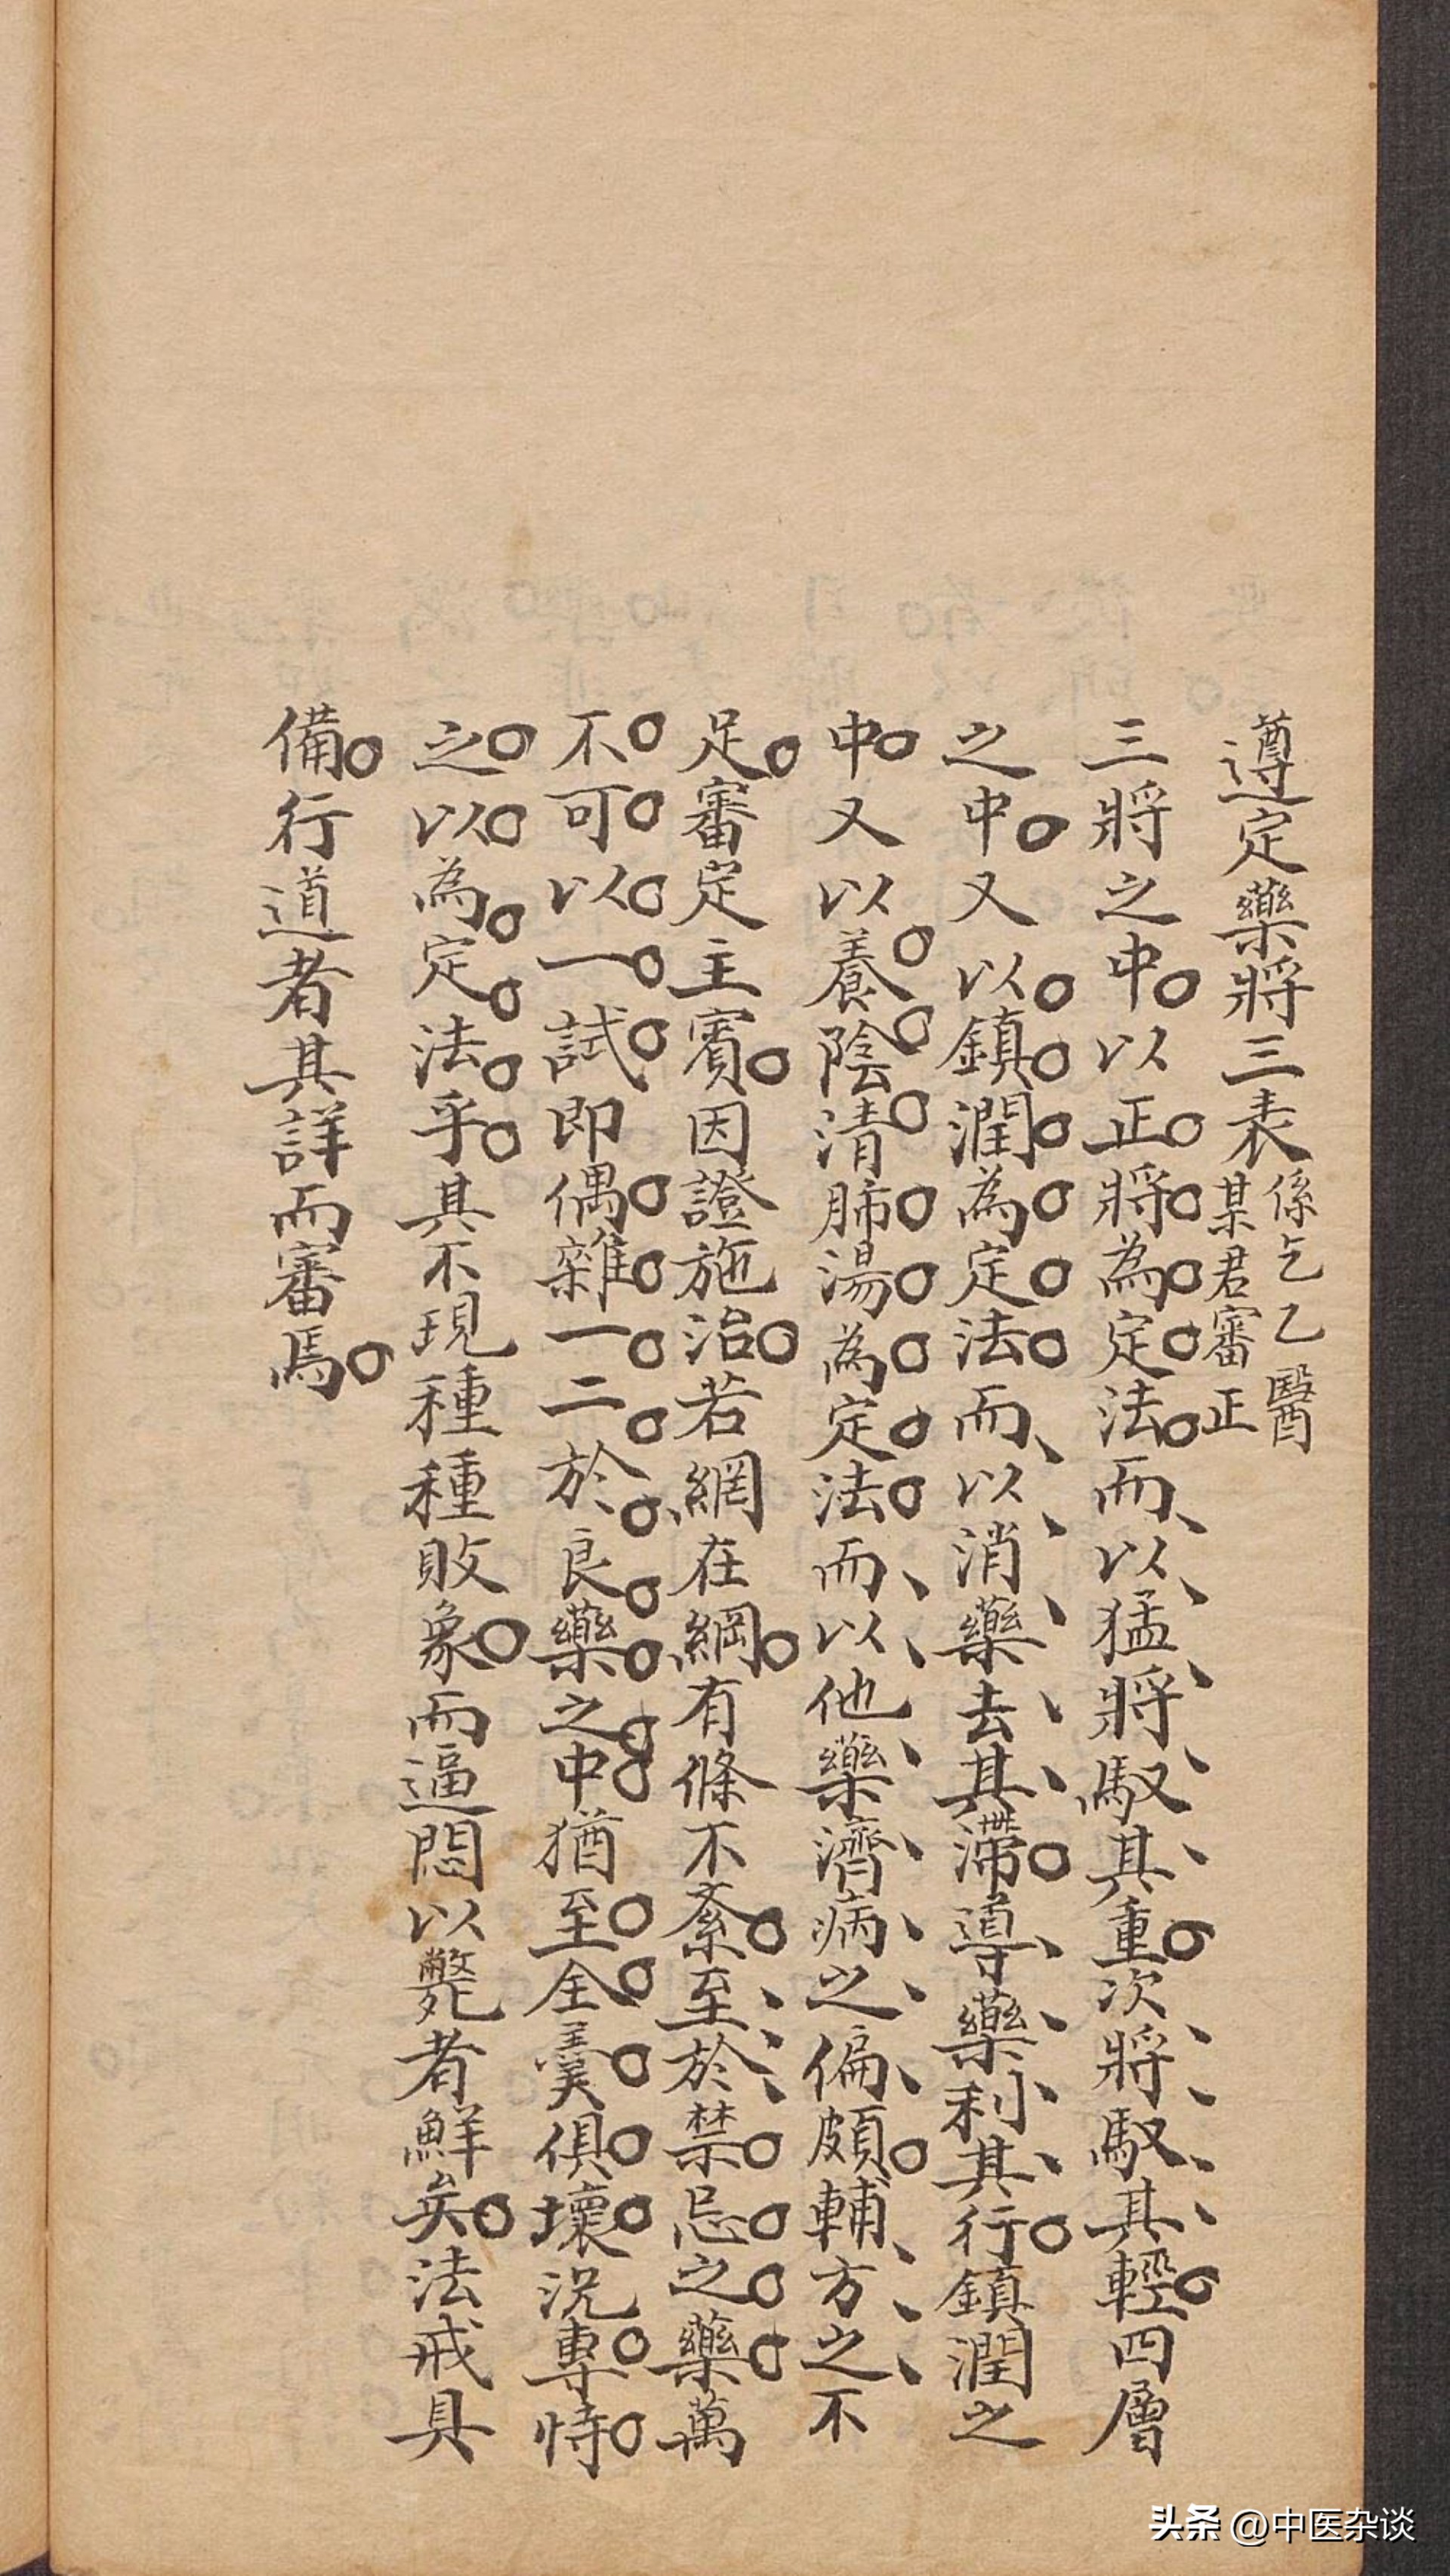 遵定藥將三表係乞乙醫某君審正
三將之中以正將為定法而以猛將馭其重次將馭其輕四層
之中又以鎮潤為定法而以消藥去其滯導藥利其行鎮潤之
中又以養陰清肺湯為定法而以他藥濟病之偏頗輔方之不
足審定主賓因證施治若網在綱有條不紊至於禁忌之藥萬
不可以一試即偶雜一二於良藥之中猶至全羹俱壞況專恃
之以為定法乎其不現種種敗象而逼悶以斃者鮮矣法戒具
備行道者其詳而審焉
头条 @中医杂谈